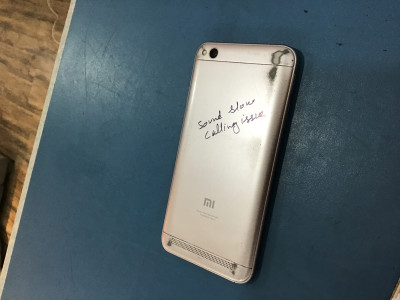 Sound slow
Calling issue
MI